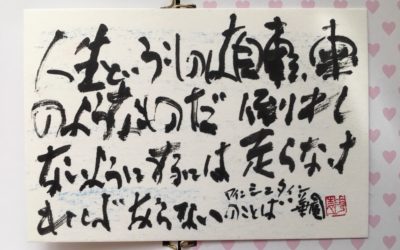 人生というものは自転車
のようなものだ 倒れし
ないようにするには 走らなけ
ればならない アインシュタイン
のことば